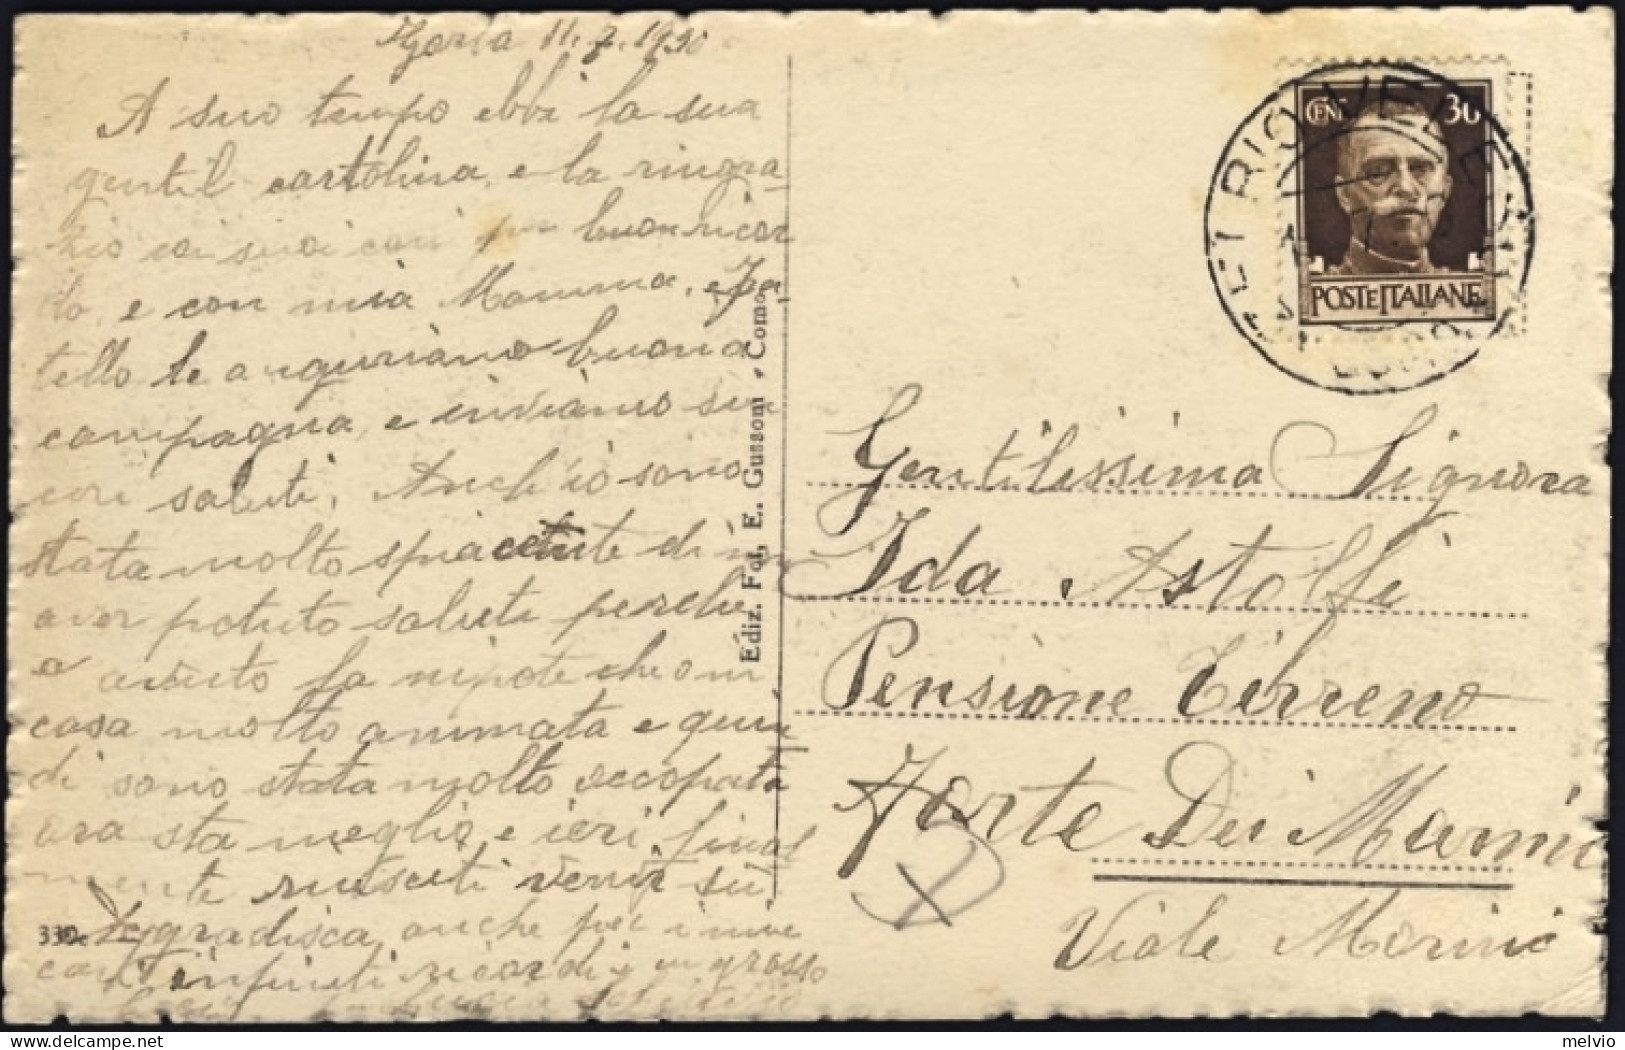 11.7.1930
A suo tempo ebbi la sua
gentil cartolina, e la ringra-
zio coi suoi cari per buon ricor
do, e con mia Mamma, e fra-
tello le auguriamo buona
campagna, e inviamo sin
ceri saluti. Anch'io sono
stata molto spiacente di
aver potuto saluti perche
o avuto la nipote che o in
casa molto ammata e quin
di sono stata molto occopata
ora sta meglio, e ieri final
mente riusciti venir sù
gradisca, anche per i miei
cari infiniti ricordi
Ediz. Fot. E. Gussoni - Como
330
CENT 30
POSTE ITALIANE
ROVERE
Gentilissima Signora
Ida Astolfi
Pensione Tirreno
Forte Dei Marmi
Viale Morini
melvio